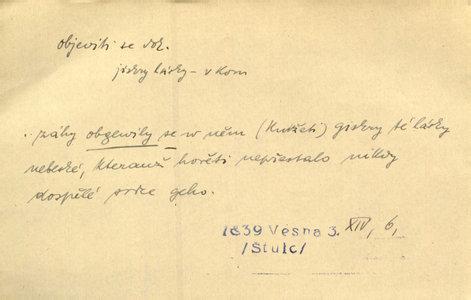 objeviti se dok.
jiskry lásky – v kom
..záhy obgewily se w něm (Knížeti) giskry té lásky
nebeské, kteranž hořeti nepřestalo nikdy
dospělé srdce geho.
1839 Vesna 3. XIV, 6,
/Štulc/